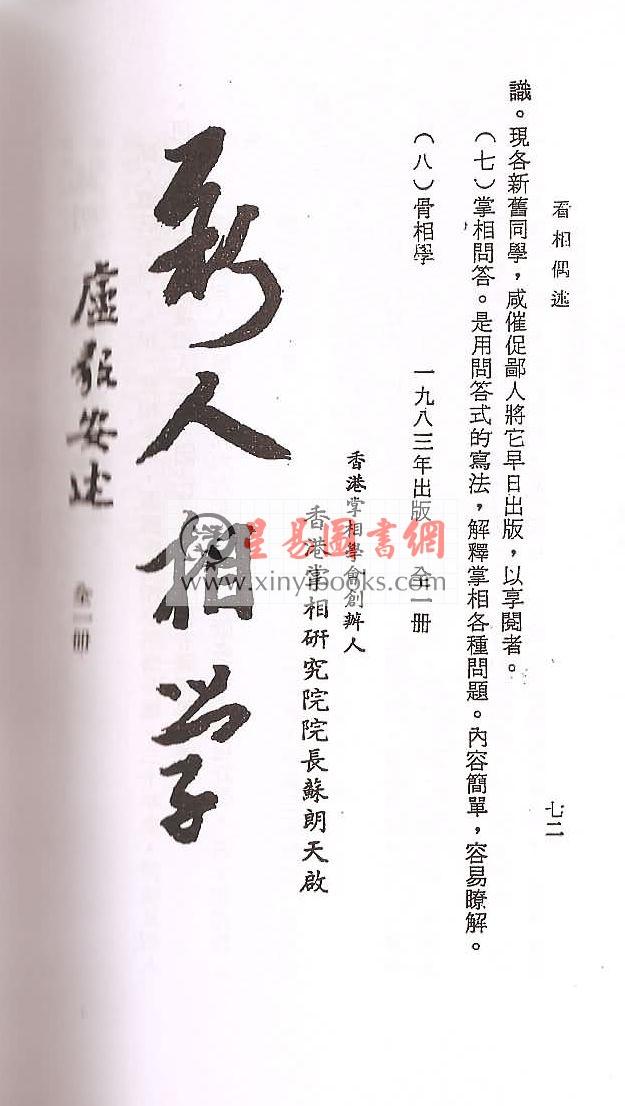 看相偶述
七二
識。現各新舊同學，咸催促鄙人將它早日出版，以享閱者。
（七）掌相問答。是用問答式的寫法，解釋掌相各種問題。內容簡單，容易瞭解。
（八）骨相學　一九八三年出版　全一册
香港掌相學會創辦人
香港掌相研究院院長蘇朗天啟
新人相学
盧毅安述
全一册
星易圖書網
www.xinyibooks.com